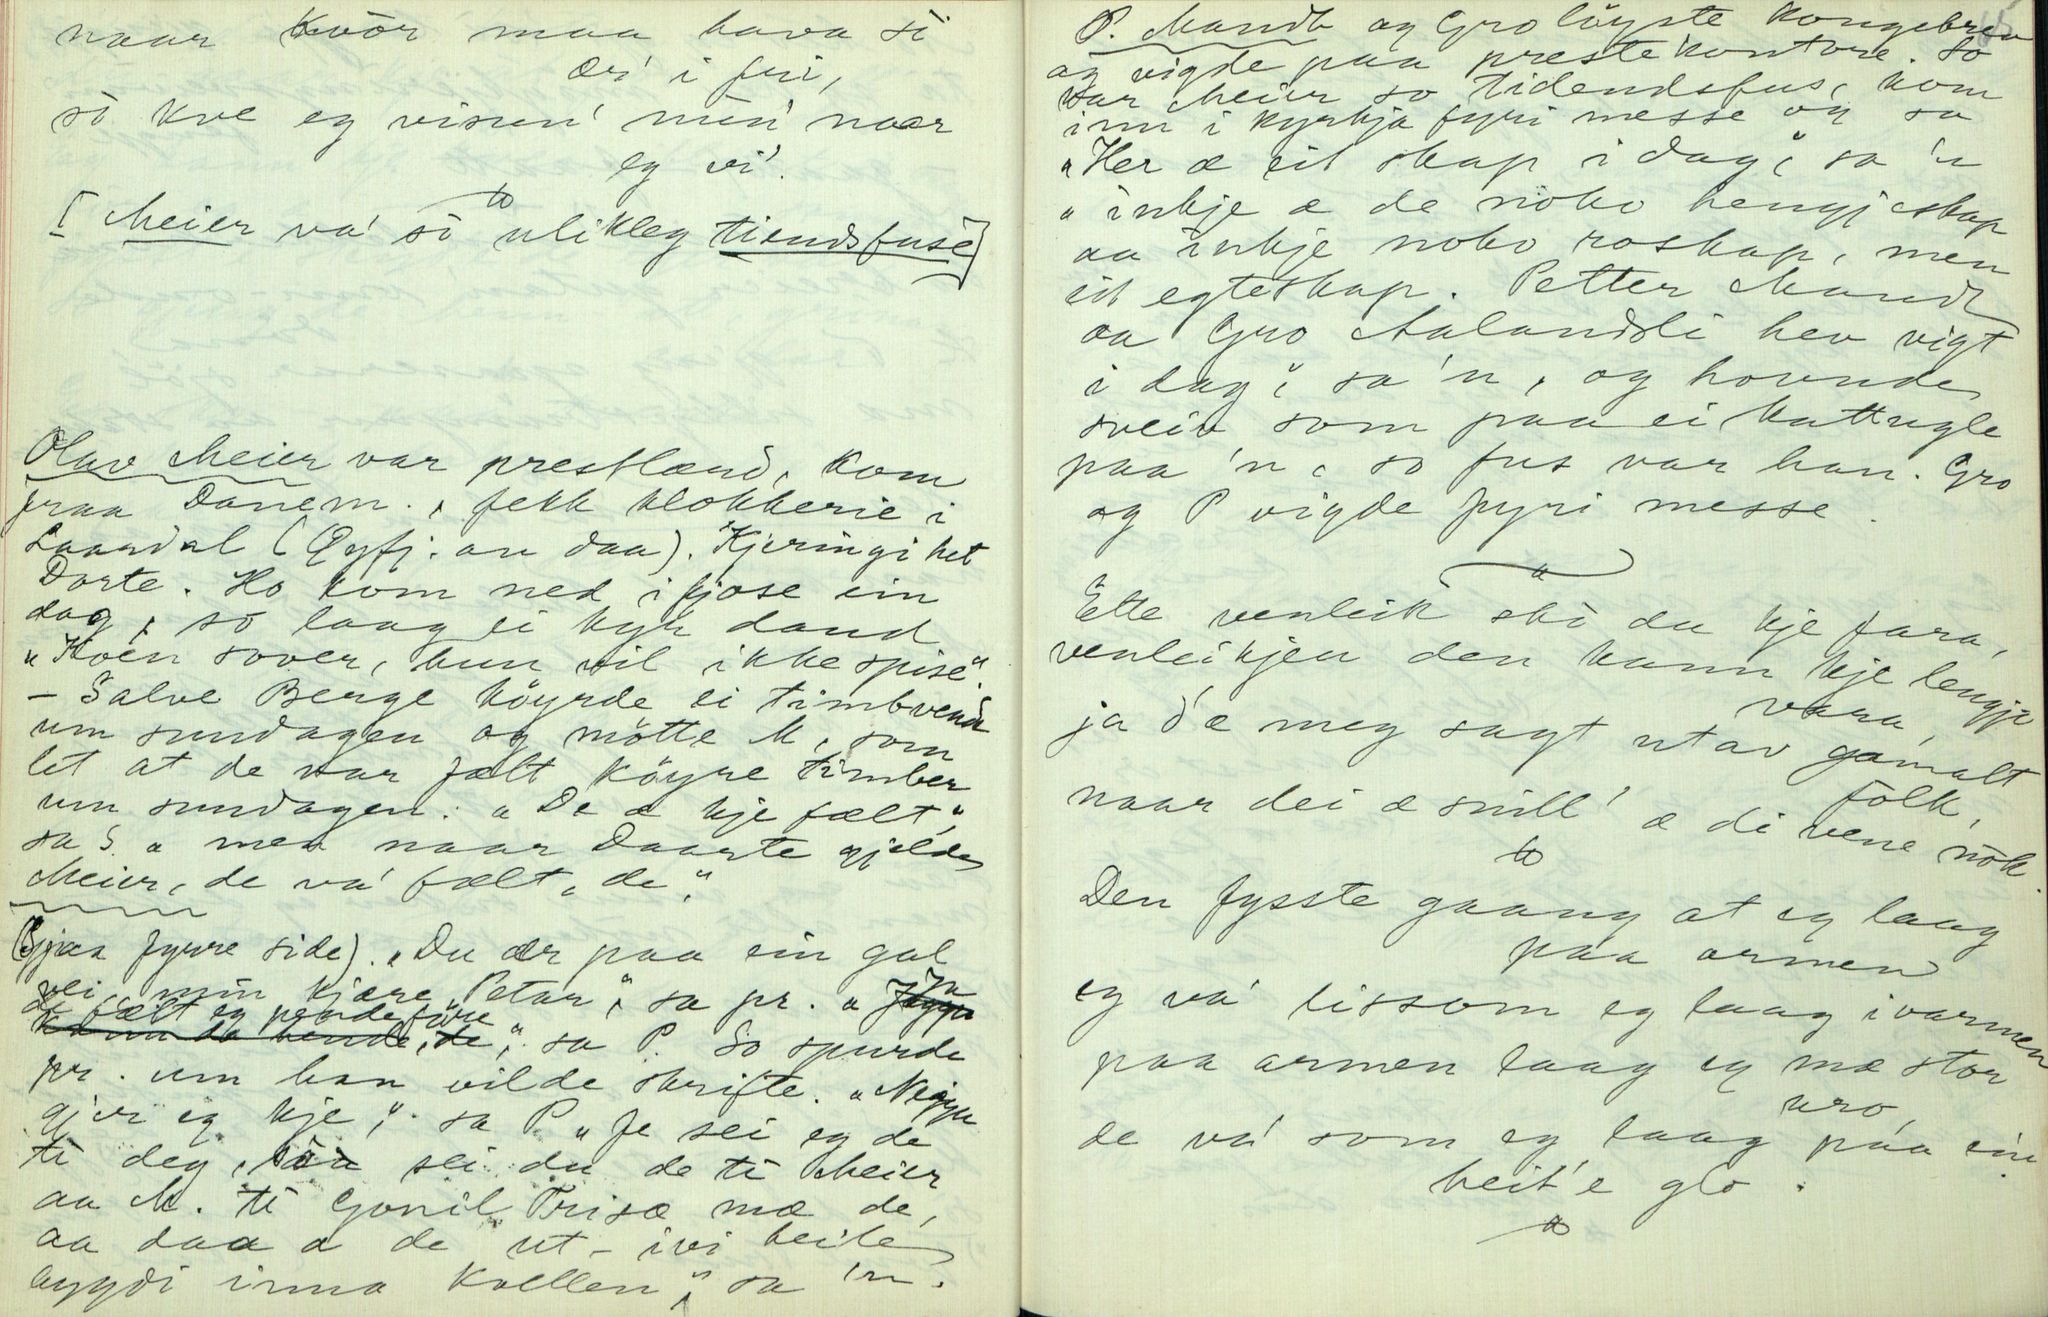 naar kvòr maa hava sì
ær' i fri,
sò kve eg visun' min' naar
eg vi'.
[Meier va' sò ulikleg tiendsfuse]
Olav Meier var prestlærd, kom
fraa Danem., fekk klokkerie i
Laardal (Qvfj. an daa). Kjeringi het
Dorte. Ho kom ned i fjose ein
dag, so laag ei kyr daud
"Koen sover, hun vil ikke spise".
– Salve Berge köyrde ei timbrende
um sundagen og mötte M, som
let at de var fælt köyre timber
um sundagen. "De æ kje fælt,"
sa S. "men naar Daarte gjelde
Meier, de va' fælt, de".
(Sjaa fyrre side). "Du ær paa ein gal
vei min kjære Petar", sa pr. "Ja
de fælt eg rende fure", sa P. So spurde
pr. um han vilde skrifte. "Neggu
gjer eg kje," sa P. "Fe sei eg de
ti deg, sei du de ti Meier
aa M. ti Gonil Trisæ mæ de,
aa daa a de ut-ivi heile
bygdi inna kvellen," sa 'n.
P. Mandt og Gro löyste kongebrev
og vigde paa prestekontore. So
var Meier so tidendsfus, kom
inn i kyrkja fyri messe og sa
"Her æ eit skap i dag", sa 'n
"inkje æ de noko hengjeskap
aa inkje noko roskap, men
eit egteskap. Petter Mandt
aa Gro Aalandsli hev vigt
i dag", sa 'n, og hovude
sveiv som paa ei kattugle
paa 'n, so fus var han. Gro
og P vigde fyri messe.
Ette venleik ski du kje fara,
venleikjen den kann kje lengje
vara,
ja d'æ meg sagt utav gamalt
folk,
naar dei æ snill' æ di vene nòk.
Den fysste gaang at eg laag
paa armen
eg va' lissom eg laag i varmen
paa armen laag eg mæ stor
uro,
de va' som eg laag paa ein
heit'e glo.